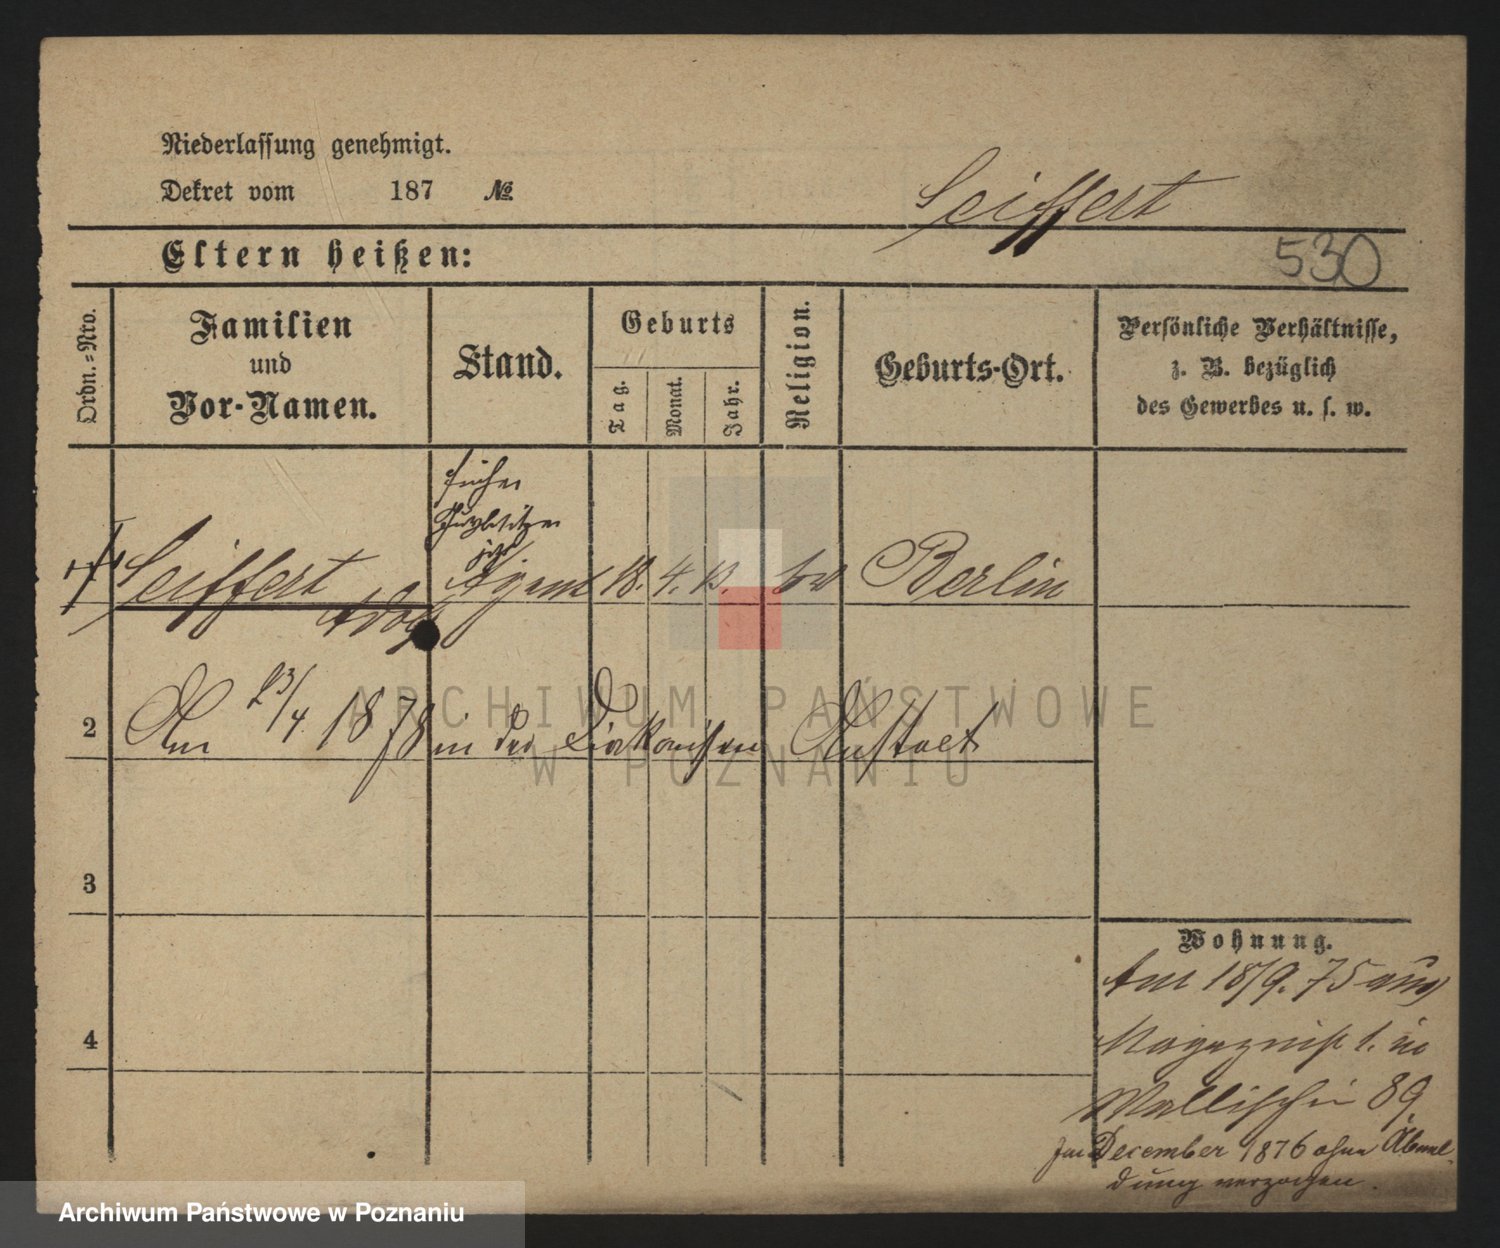 Niederlassung genehmigt.
Dekret vom 187 №
Seiffert
Eltern heißen:
530
Ordn.=Nro.
Familien
und
Vor-Namen.
Stand.
Geburts
Tag.
Monat.
Jahr.
Religion.
Geburts-Ort.
Persönliche Verhältnisse,
z. B. bezüglich
des Gewerbes u. s. w.
früher
jetzt
Seiffert Agent 18. 4. 13. ev Berlin
Adolf
2 Am 23/4 1878 in der Diakonissen Anstalt
3
4
Wohnung.
Am 18/9. 75 aus
Magazinstr 1. in
Wallischei 89.
Im December 1876 ohne Abmel-
dung verzogen.
ARCHIWUM PAŃSTWOWE
W POZNANIU
Archiwum Państwowe w Poznaniu